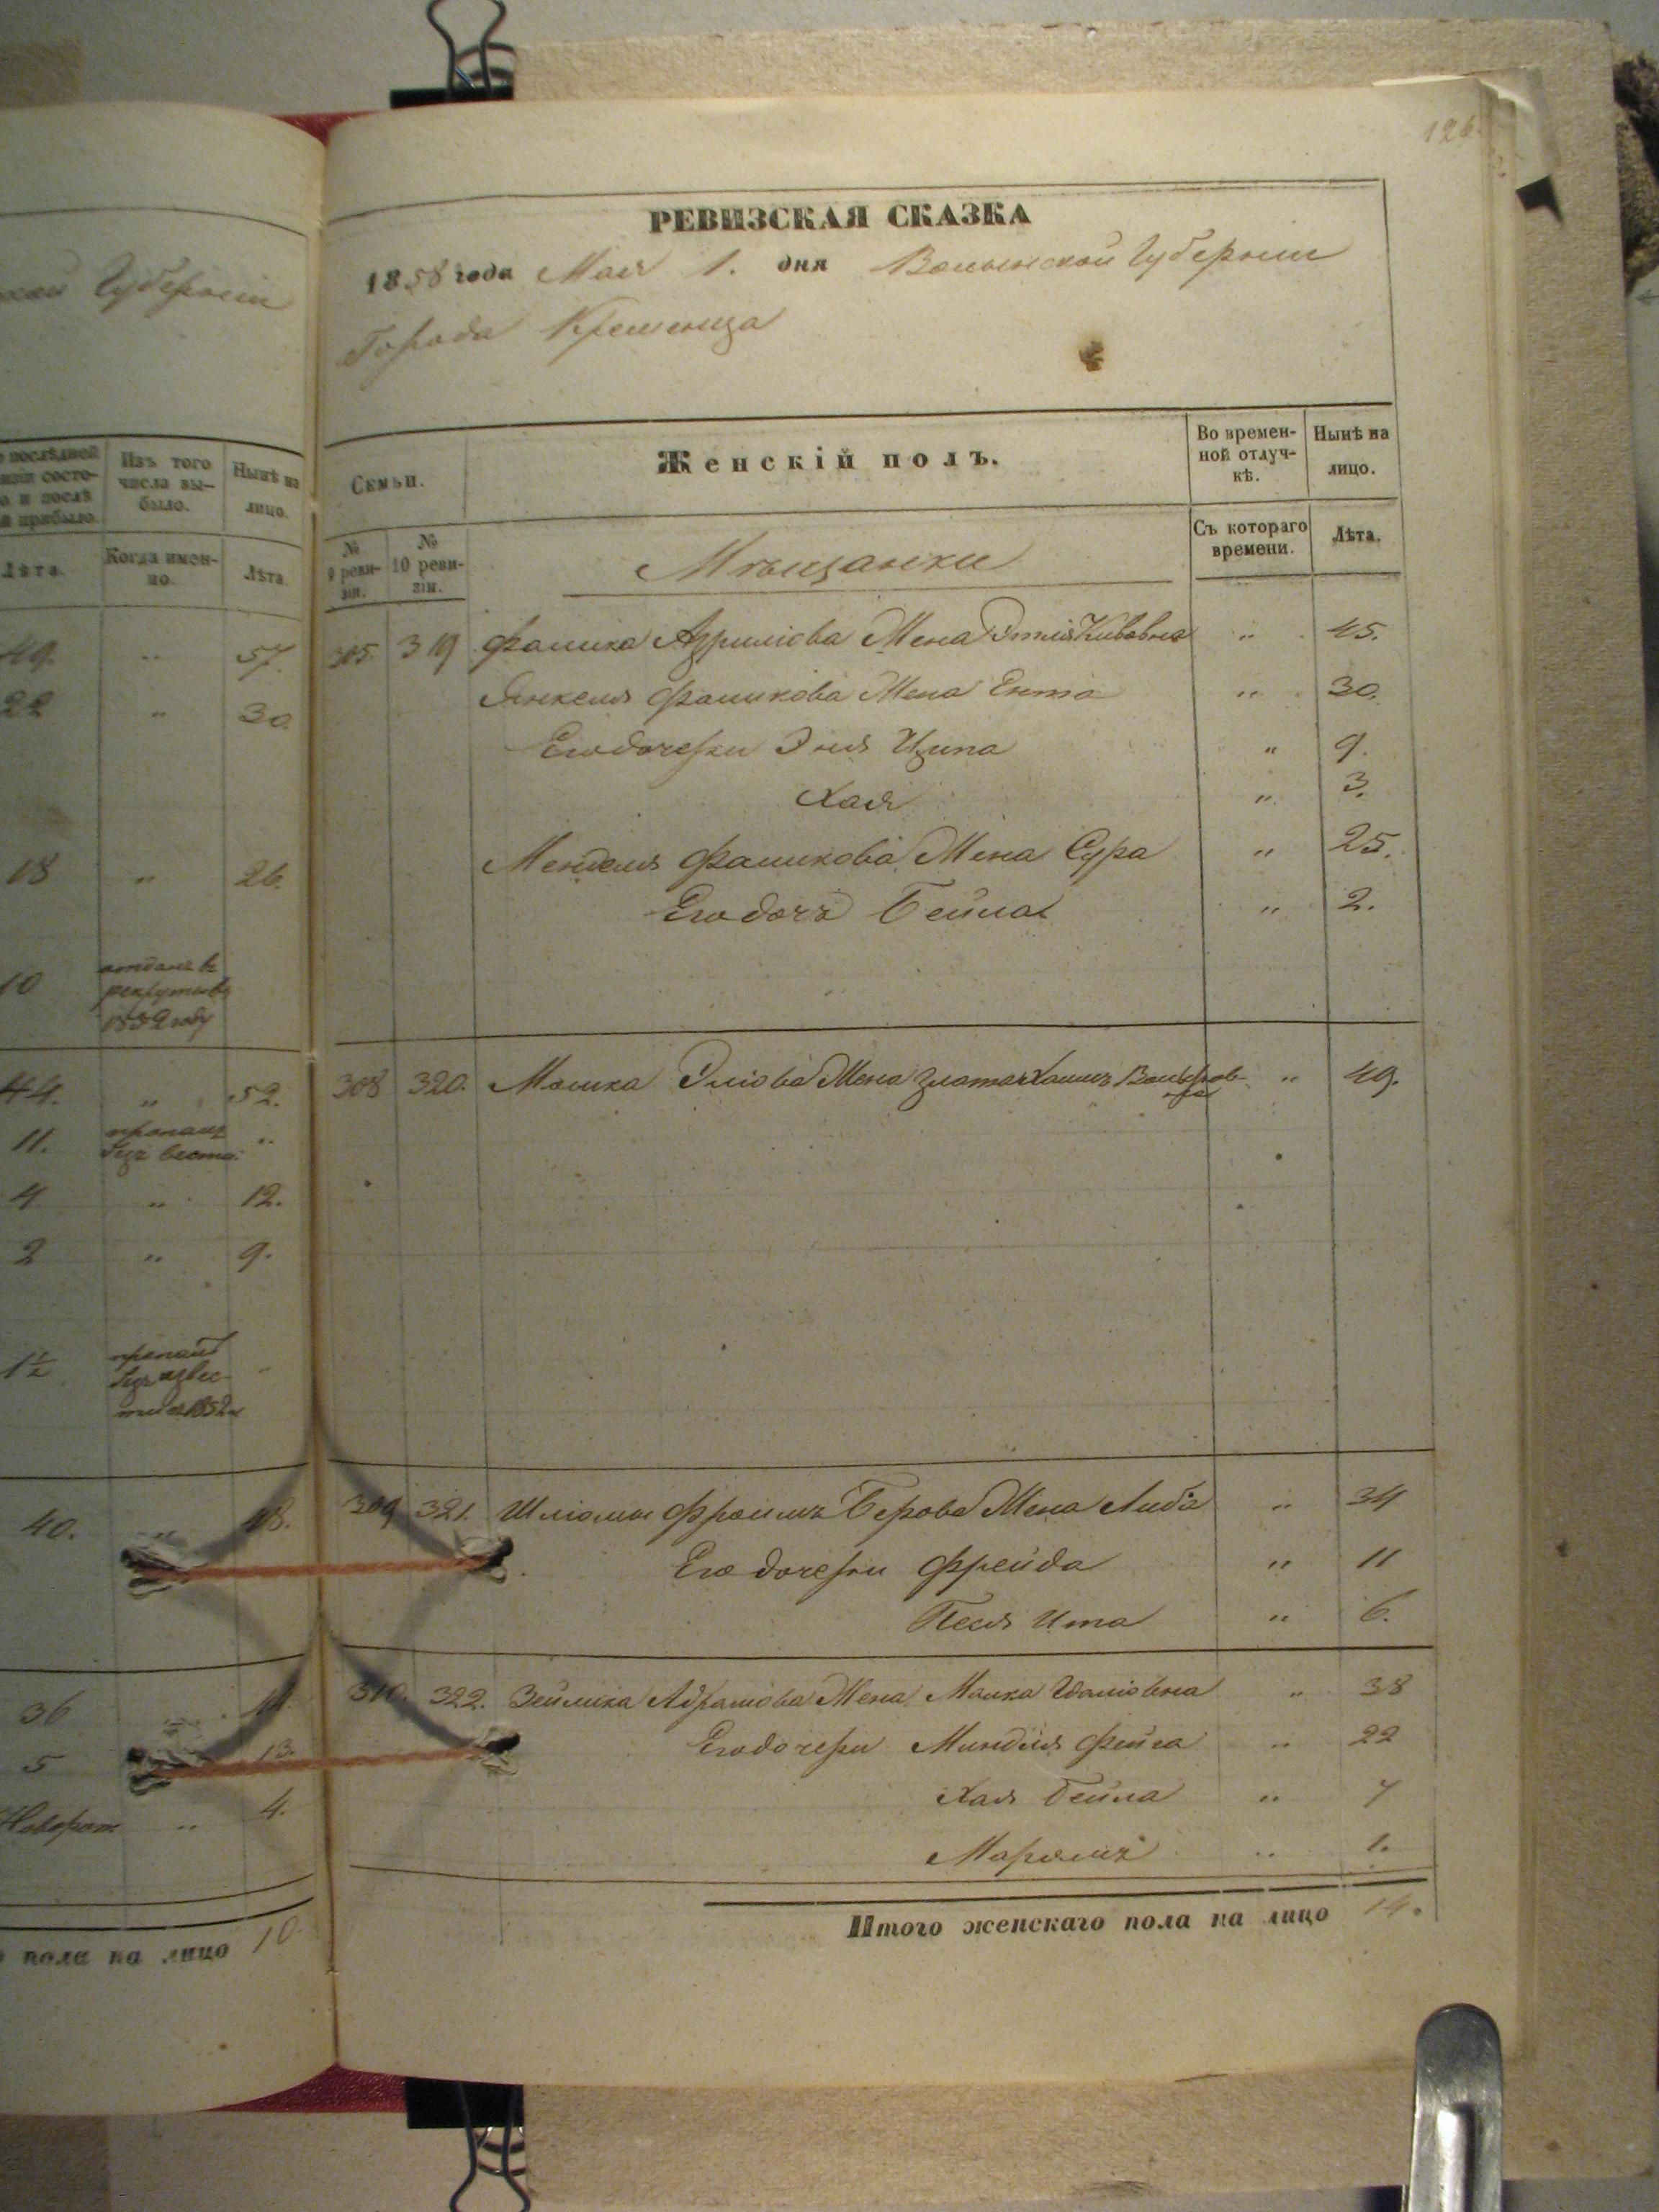 126
РЕВИЗСКАЯ СКАЗКА
1858 года Мая 1. дня Волынской Губернии
Города Кременца
Семьи.
Женскій полъ.
Во времен-
ной отлуч-
кѣ.
Нынѣ на
лицо.
№
9 реви-
зіи.
№
10 реви-
зіи.
Мѣщанки
Съ котораго
времени.
Лѣта.
305. 319 Фалика Азриліова Жена Этля Кивовна " 45.
Янкеля Фаликова Жена Ента " 30.
Его дочери Эня Ципа " 9.
Хая " 3.
Менделя Фаликова Жена Сура " 25.
Его дочь Бейла " 2.
308 320. Мошка Эліова Жена Злата Волькров-
на " 49.
309 321. Шліомы Фроимъ Берова Жена Либа " 34
Его дочери Фрейда " 11
Песя Ита " 6.
310. 322. Зейлика Абрамова Жена Малка " 38
Его дочери Миндля Фейга " 22
Хая Бейла " 7
Марямъ " 1.
Итого женскаго пола на лицо 14.
Губерніи
последней
Изъ того
числа вы-
было.
Нынѣ на
лицо.
и послѣ
прибыло.
Лѣта.
Когда имен-
но.
Лѣта
49. " 57.
22 " 30.
18 " 26.
10 отданъ въ
рекруты въ
1852 году
44. " 52.
11. пропалъ
безъ вести. "
4 " 12.
2 " 9.
1½ пропалъ
безъ извес-
тія 1852
40. " 48.
36
5 13.
Новорож. " 4.
пола на лицо 10.